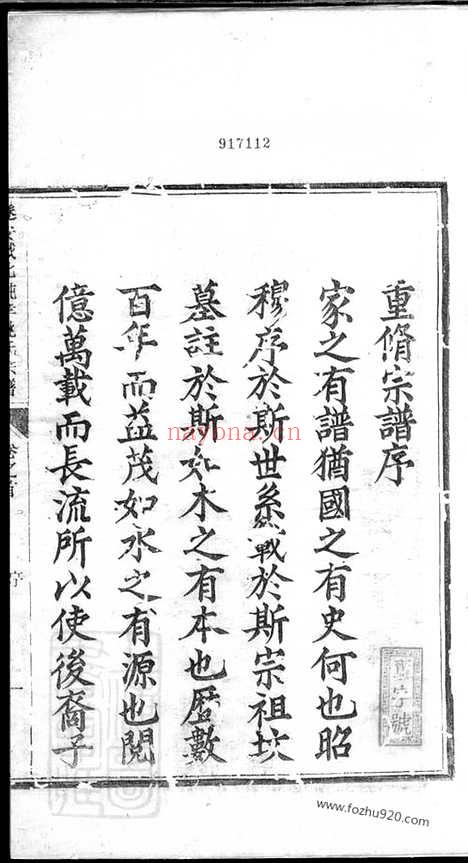 917112
重脩宗譜序
家之有譜猶國之有史何也昭
穆序於斯世系載於斯宗祖坟
墓註於斯如木之有本也歷數
百年而益茂如水之有源也閱
億萬載而長流所以使後裔子
聖字號
nayona.cn
www.fozhu920.com